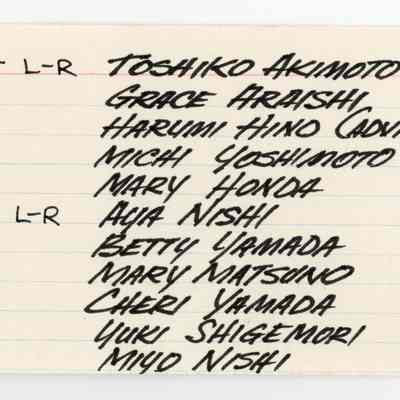 - L-R TOSHIKO AKIMOTO
GRACE ARAISHI
HARUMI HINO (ADVI
MICHI YOSHIMOTO
MARY HONDA
L-R AYA NISHI
BETTY YAMADA
MARY MATSUNO
CHERI YAMADA
YUKI SHIGEMORI
MIYO NISHI